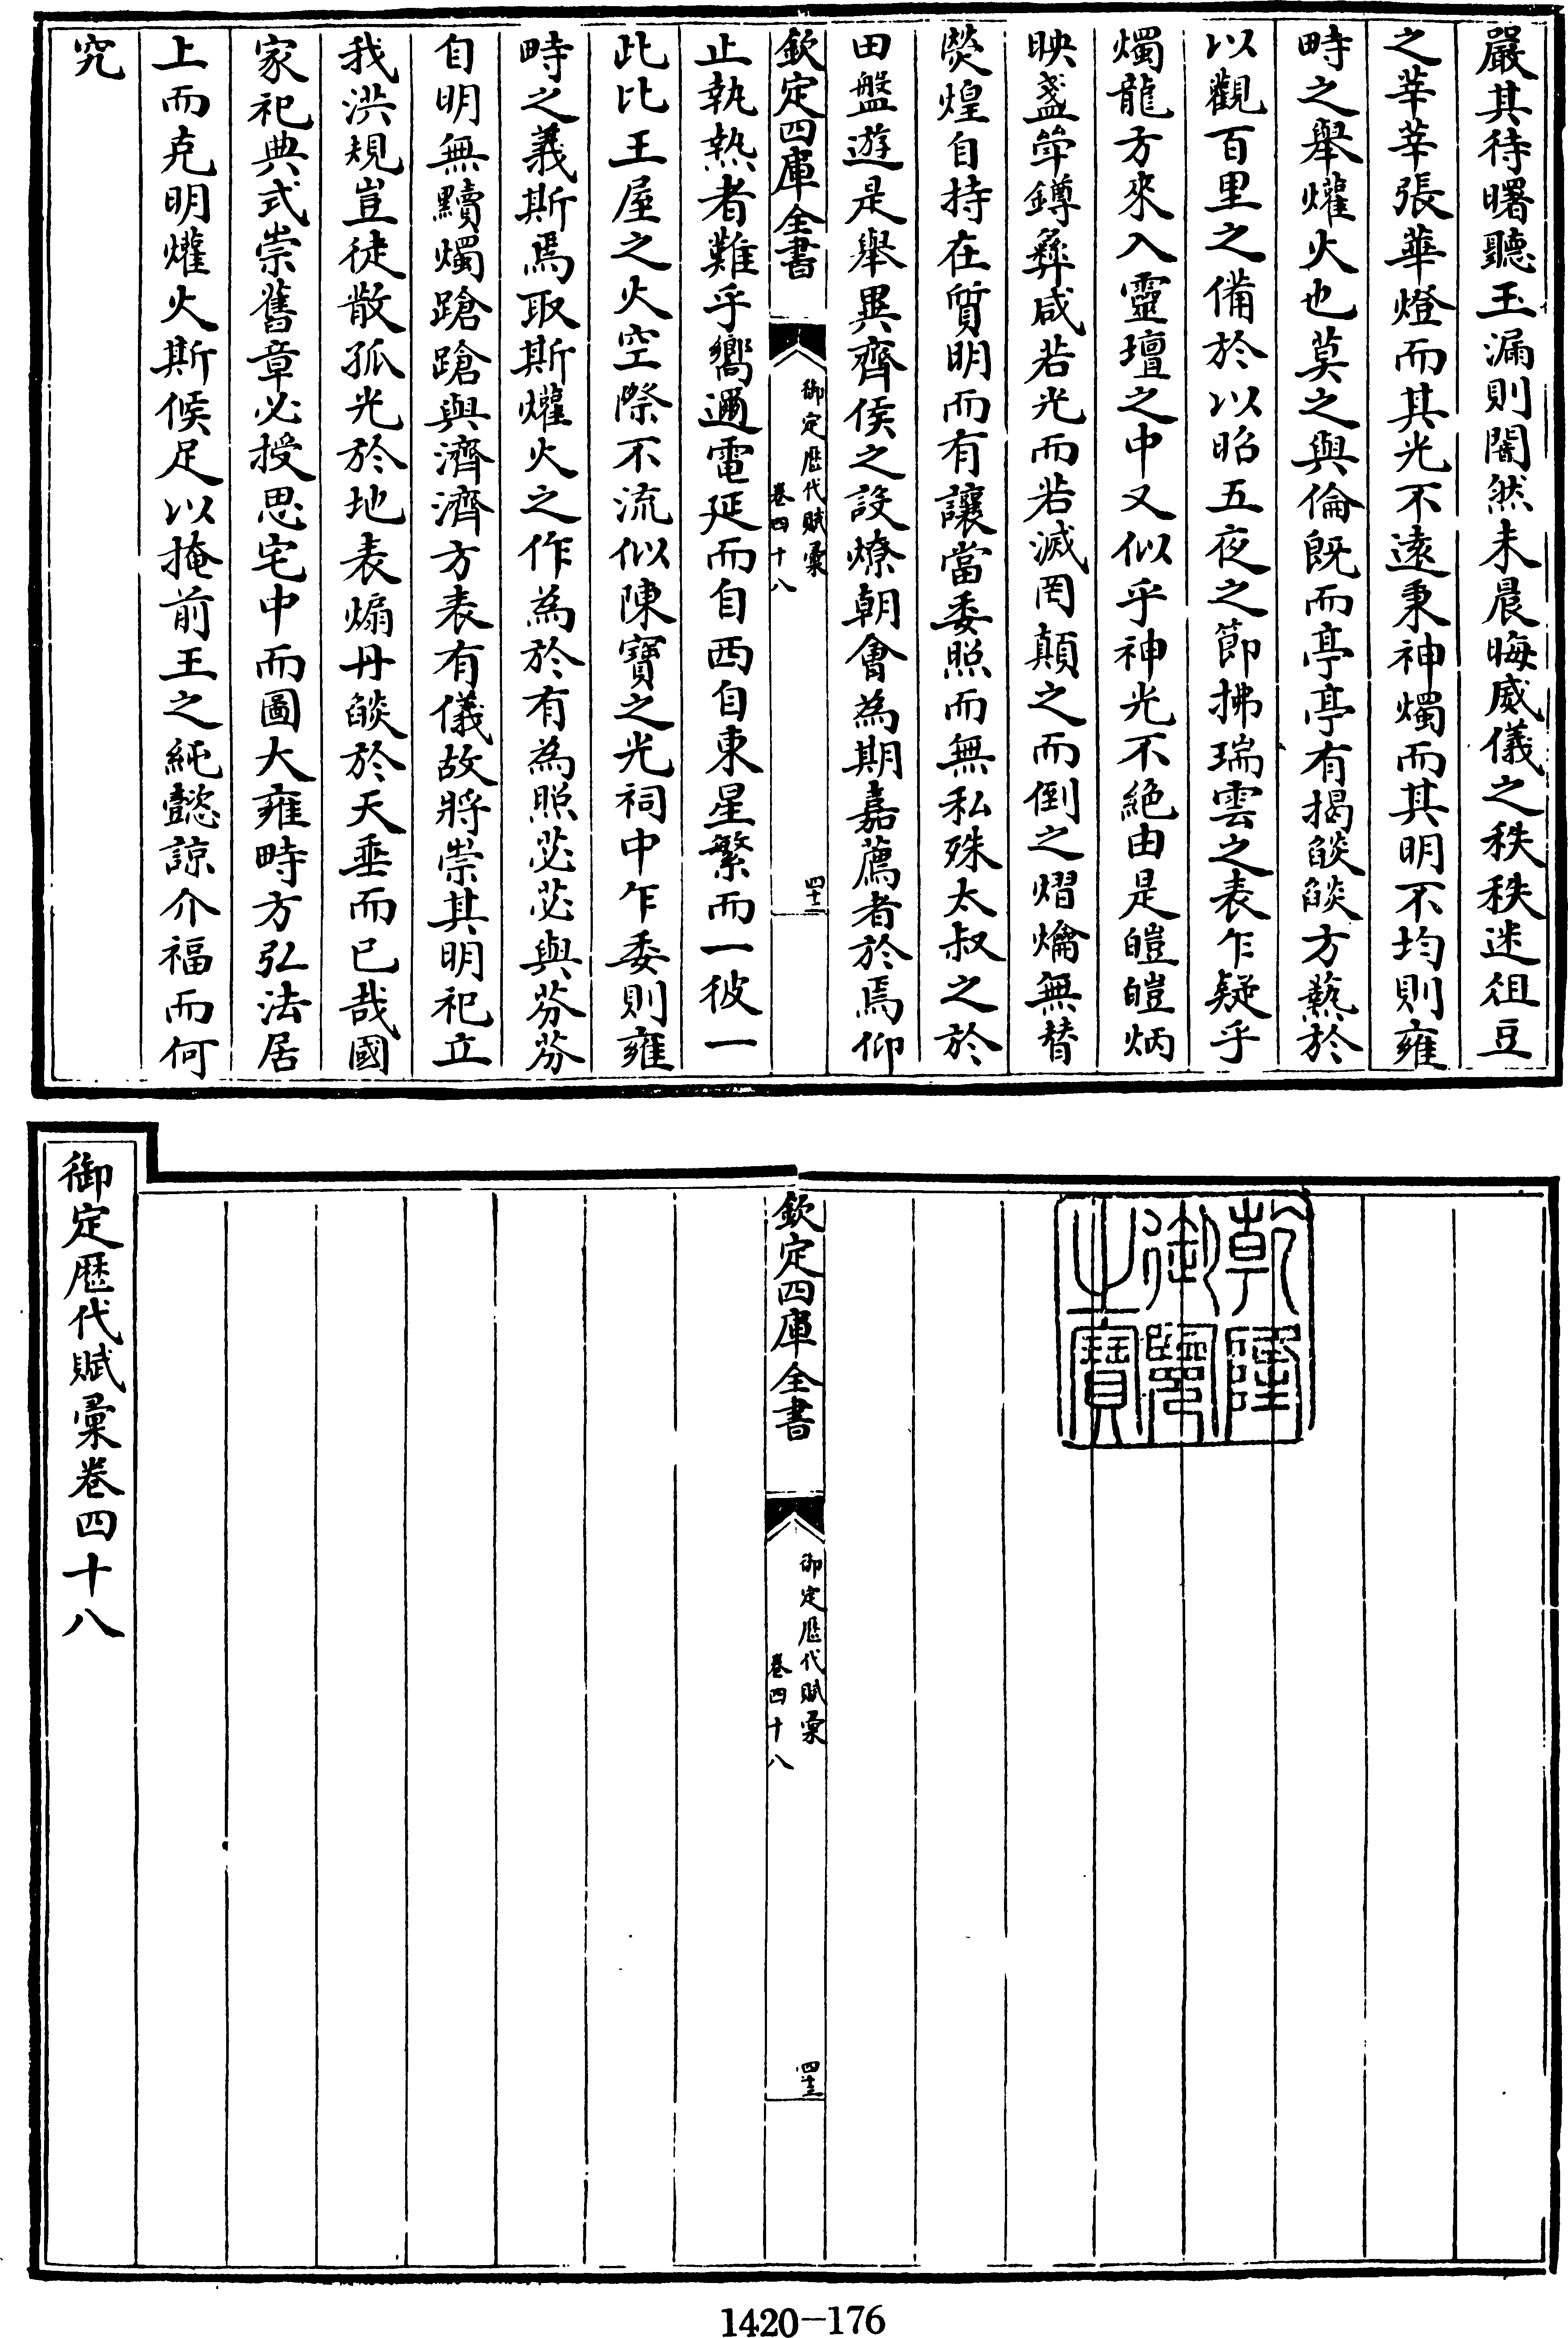 嚴其待曙聽玉漏則闇然未晨晦威儀之秩秩迷俎豆
之莘莘張華燈而其光不遠秉神燭而其明不均則雍
畤之舉爟火也莫之與倫既而亭亭有揭燄燄方熱於
以觀百里之備於以昭五夜之節拂瑞雲之表乍疑乎
燭龍方來入靈壇之中又似乎神光不絕由是皚皚炳
映盞斝鐏彝咸若光而若滅罔顛之而倒之熠爚無替
熒煌自持在質明而有讓當委照而無私殊太叔之於
田盤遊是舉異齊侯之設燎朝會為期嘉薦者於焉仰
欽定四庫全書
御定歴代賦彙
卷四十八
四十二
止執熱者難乎嚮邇電延而自西自東星繁而一彼一
此比王屋之火空際不流似陳寶之光祠中乍委則雍
畤之義斯焉取斯爟火之作為於有為照苾苾與芬芬
自明無黷燭蹌蹌與濟濟方表有儀故將崇其明祀立
我洪規豈徒散孤光於地表煽丹燄於天垂而已哉國
家祀典式崇舊章必授思宅中而圖大雍畤方弘法居
上而克明爟火斯候足以掩前王之純懿諒介福而何
究
乾隆
御覽
之寶
欽定四庫全書
御定歴代賦彙
卷四十八
四十三
御定歴代賦彙卷四十八
1420-176